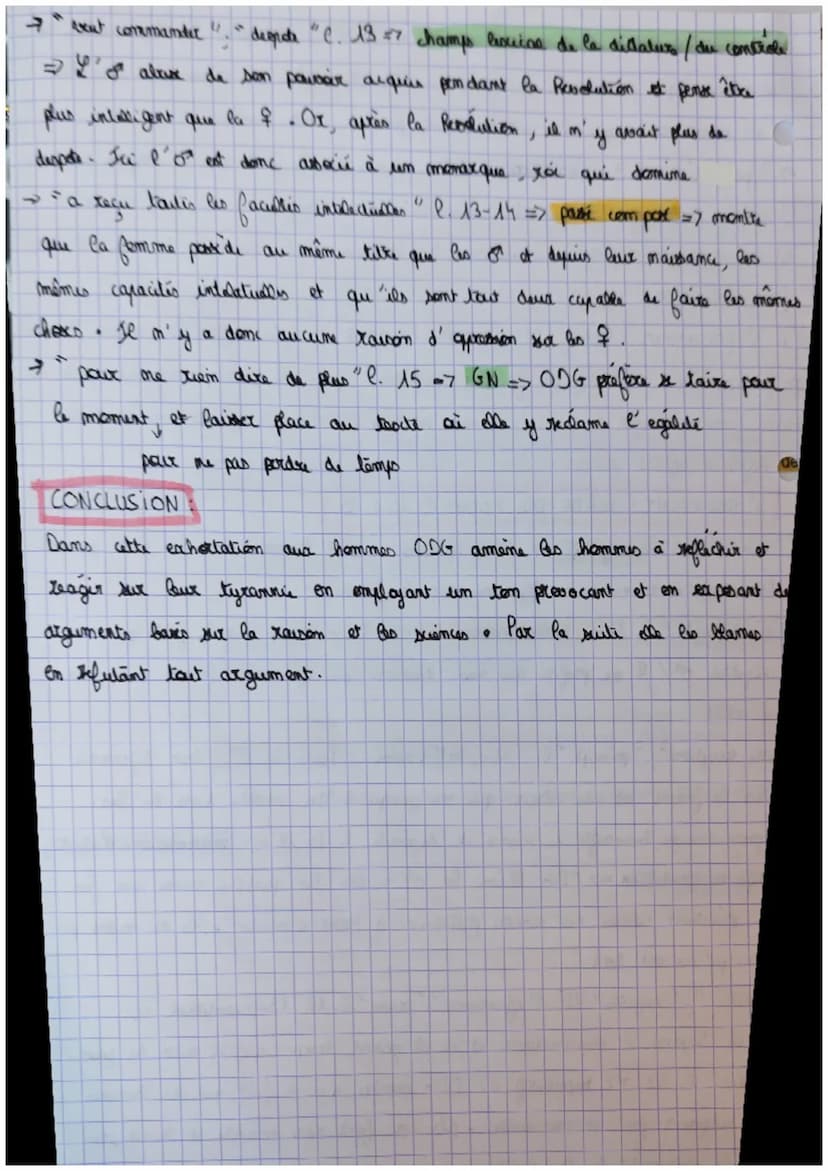 → "veut commander", "despote" l. 13 => champs lexical de la dictature / du contrôle
=> L'♂ abuse de son pouvoir acquis pendant la Révolution et pense être
plus intelligent que la ♀. Or, après la Révolution, il n'y avait plus de
despote. Ici l'♂ est donc associé à un monarque, roi qui domine
→ "a reçu toutes les facultés intellectuelles" l. 13-14 => passé composé => montre
que la femme possède au même titre que les ♂ et depuis leur naissance, les
mêmes capacités intellectuelles et qu'ils sont tout deux capable de faire les mêmes
choses. Il n'y a donc aucune raison d'oppression sur les ♀.
→ "pour ne rien dire de plus" l. 15 => GN => ODG préfère se taire pour
le moment, et laisser place au texte où elle y réclame l'égalité
↓
pour ne pas perdre de temps
CONCLUSION :
Dans cette exhortation aux hommes ODG amène les hommes à réflechir et
réagir sur leur tyrannie en employant un ton provocant et en exposant de
arguments basés sur la raison et les sciences. Par la suite elle les blames
en réfutant tout argument.